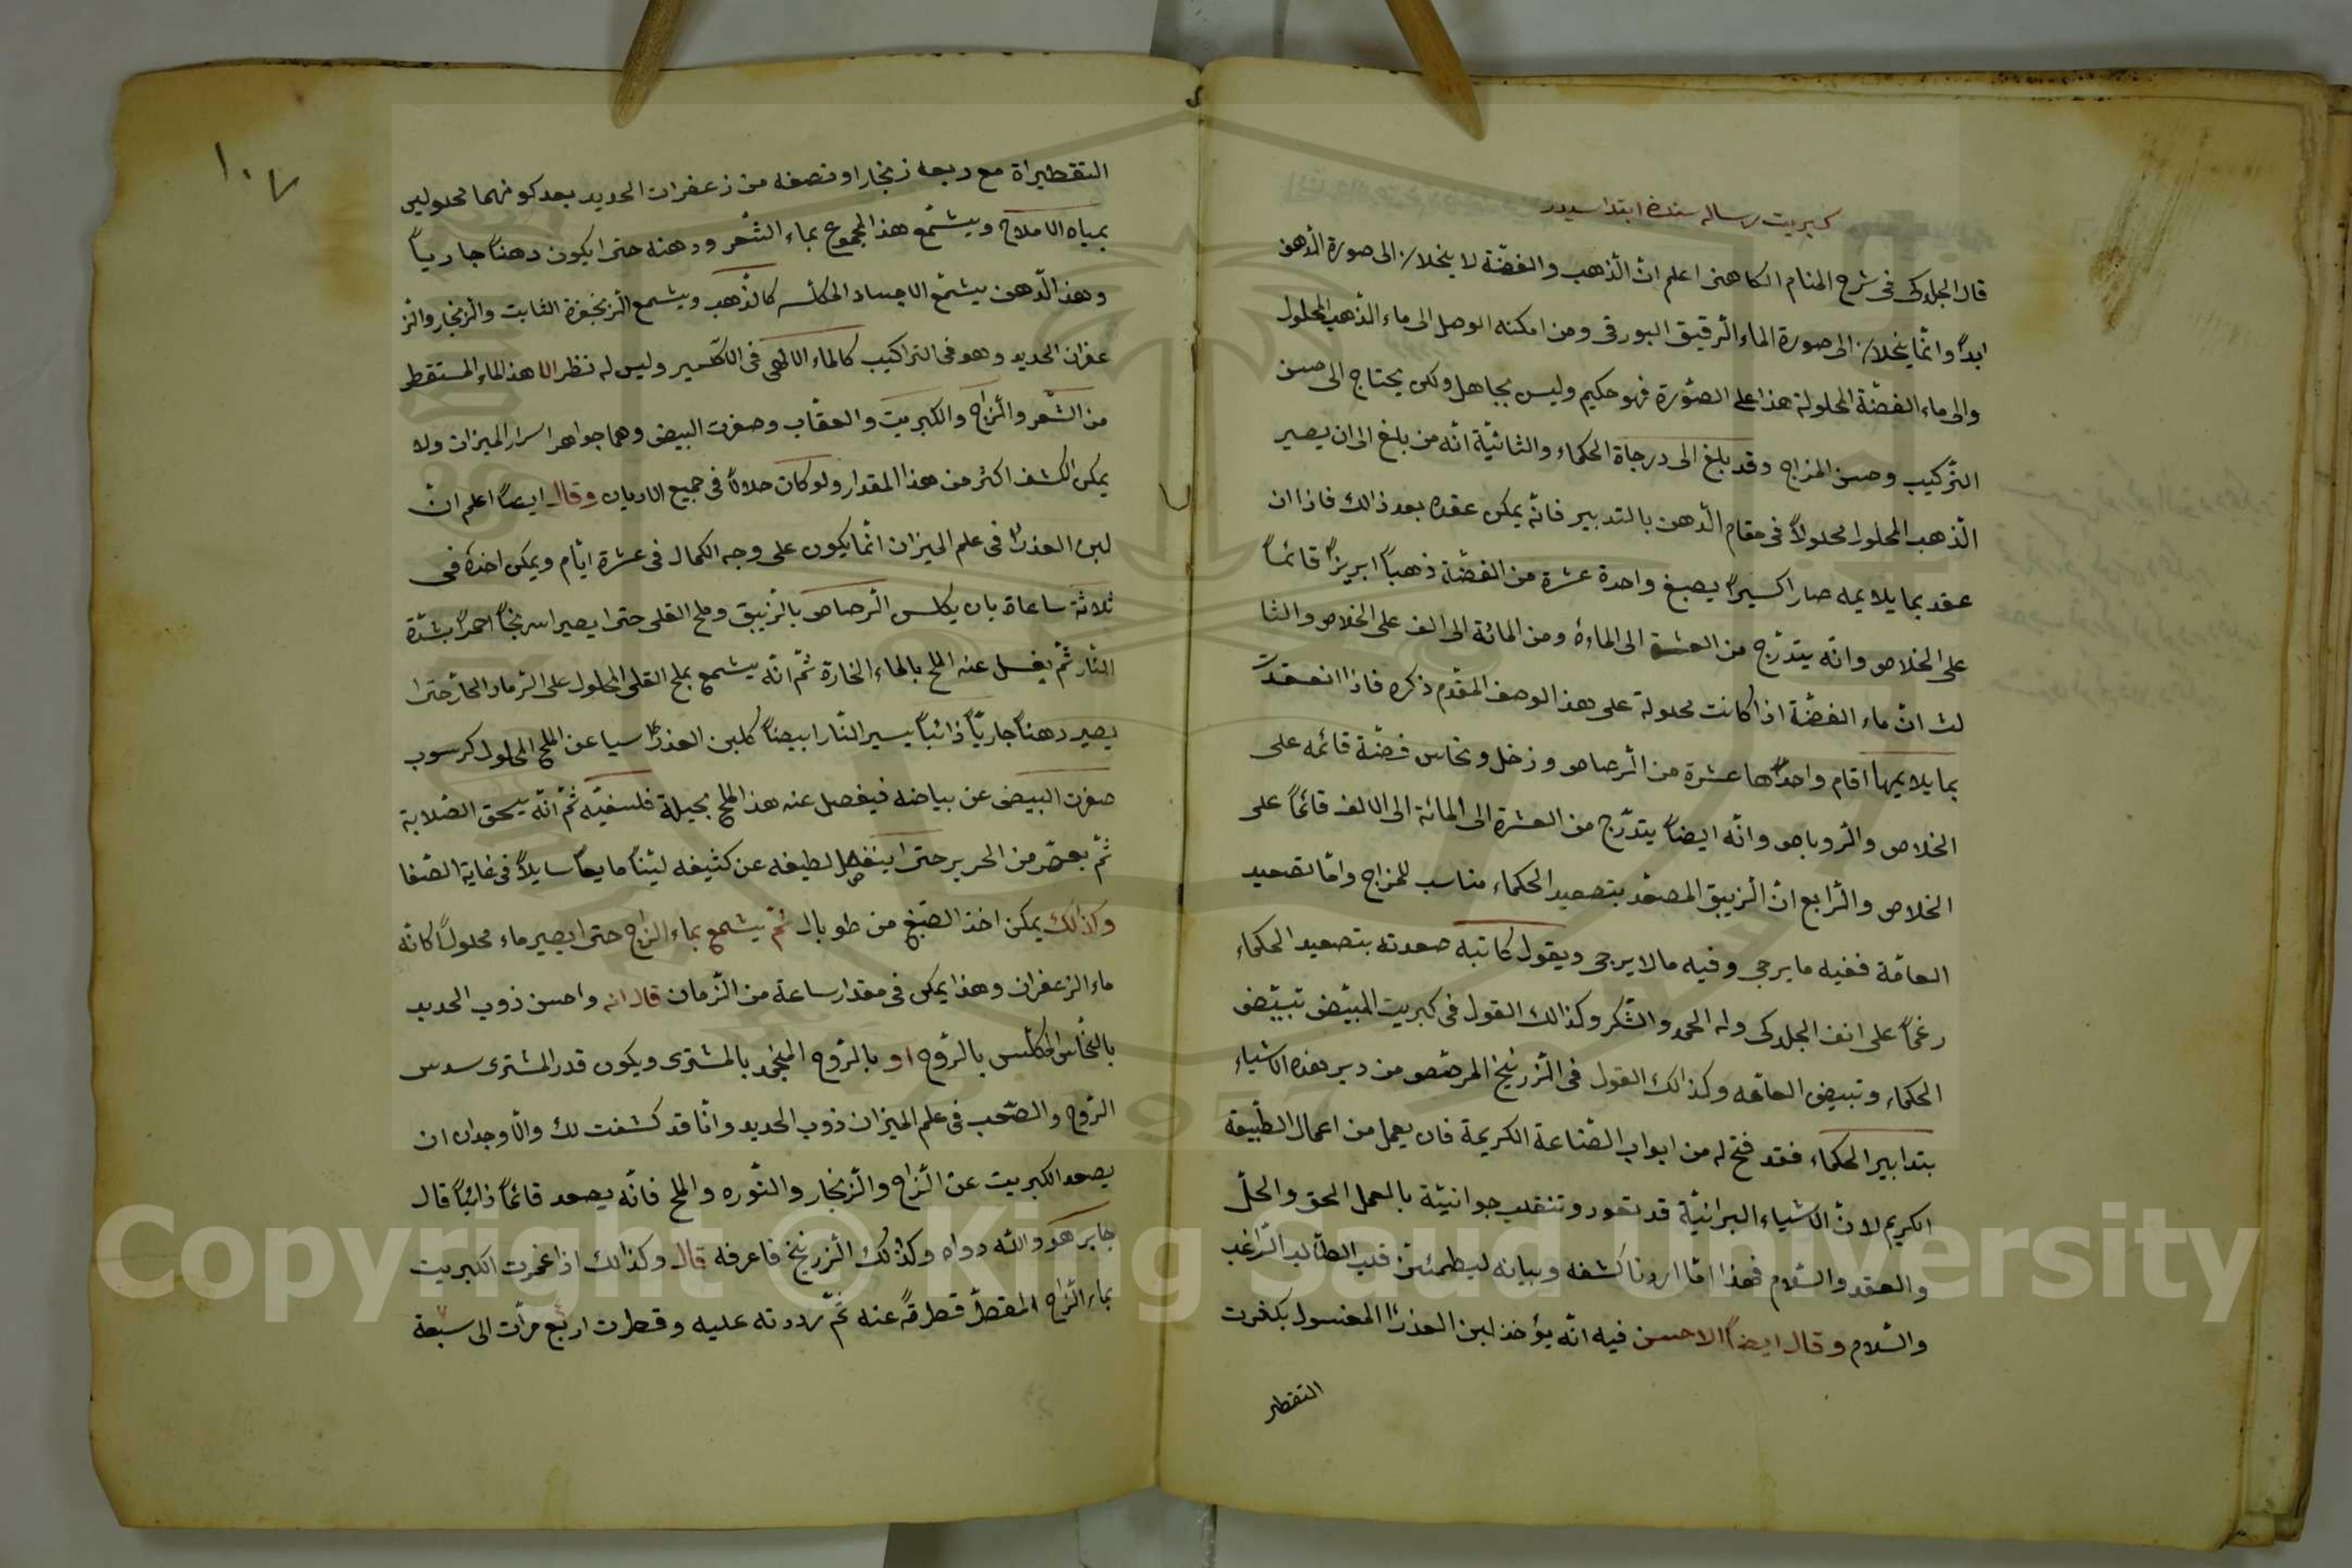 كبريت رساله سنده ابتدا سيدر
قال الجلدكى فى شرح المنام الكاهنى اعلم انّ الذهب والفضّة لا ينحلان الى صورة الدّهن
ابداً وانّما ينحلان الى صورة الماء الرّقيق البورقى ومن امكنه الوصل الى ماء الذّهب المحلول
والى ماء الفضّة المحلولة هذا على الصّورة فهو حكيم وليس بجاهل ولكن يحتاج الى حسن
التّركيب وحسن المزاج وقد بلغ الى درجاة الحكماء والثانيّة انّه من بلغ الى ان يصير
الذّهب المحلول محلولاً فى مقام الدّهن بالتدبير فانّه يمكن عقده بعد ذالك فاذا ان
عقد بما يلايمه صار اكسيراً يصبغ واحدة عشرة من الفضّة ذهباً ابريزاً قائماً
على الخلاص وانّه يتدرّج من العشرة الى الماءة ومن المائة الى الف على الخلاص والثا
لث انّ ماء الفضّة اذا كانت محلولة على هذا الوصف المقدّم ذكره فاذا انعقدت
بما يلايمها اقام واحدها عشرة من الرّصاص وزخل ونحاس فضّة قائمه على
الخلاص والرّوباص وانّه ايضاً يتدرّج من العشرة الى المائة الى الالف قائماً على
الخلاص والرّابع انّ الزيبق المصعّد بتصعيد الحكماء مناسب للمزاج وامّا تصعيد
العامّة ففيه ما يرجى وفيه ما لا يرجى ويقول كاتبه صعدته بتصعيد الحكماء
رغماً على انف الجلدكى وله الحمد والشّكر وكذالك القول فى كبريت المبيّض تبييض
الحكماء وتبييض العامّه وكذالك القول فى الزرنيخ المرصّص من دبر هذه الاشياء
بتدابير الحكماء فقد فتح له من ابواب الصّناعة الكريمة فان يعمل من اعمال الطّبيعة
الكريم لانّ الاشياء البرانيّة قد تعود وتنقلب جوانيّة بالعمل الحق والحلّ
والعقد والسّلام فهذا امّا اردنا كشفه وبيانه ليطمئنّ قلب الطّالب الرّاغب
والسّلام وقال ايضاً الاحسن فيه انّه يؤخذ لبن العذرا المغسول بكغرت
التقطير
١٠٧
التقطيراة مع ربعه زنجار او نصفه من زعفران الحديد بعد كونهما محلولين
بمياه الاملاح ويشمّع هذا المجموع بماء الشّعر ودهنه حتى ايكون دهناً جارياً
وهذ الدّهن يشمّع الاجساد المكلّسه كالذّهب ويشمع الزنجفرة الثابت والزنجار والز
عفران الحديد وهو فى التراكيب كالماء الالهى فى الاكسير وليس له نظر الا هذ الماء المستقطر
من الشّعر والزّاج والكبريت والعقاب وصفرت البيض وهما جواهر اسرار الميزان ولا
يمكن الكشف اكثر من هذا المقدار ولو كان حلالاً فى جميع الاديان وقال ايضاً اعلم انّ
لبن العذرا فى علم الميزان انّما يكون على وجه الكمال فى عشرة ايّام ويمكن اخذه فى
ثلاثة ساعاة بان يكلس الرّصاص بالزّيبق وملح القلى حتى ايصير اسرنجاً احمراً بشدّة
النّار ثمّ يغسل عنه الملح بالماء الحارة ثمّ انّه يشمع بملح القلى المحلول على الرّماد الحارّ حتى ا
يصير دهناً جاريّاً ذائباً يسير النّار ابيضاً كلبن العذرا سيا عن الملح المحلول كرسوب
صفرت البيض عن بياضه فيفصل عنه هذ الملح بحيلة فلسفيّه ثمّ انّه يسحق الصّلابة
ثمّ يعصّر من الحرير حتى اينفصل لطيفه عن كثيفه ليّناً مايعاً سايلاً فى غاية الصّفا
وكذالك يمكن اخذ الصّبغ من طوبال ثمّ يشمع بماء الزاج حتى ايصير ماء محلولاً كانّه
ماء الزعفران وهذا يمكن فى مقدار ساعة من الزّمان قال انه واحسن ذوب الحديد
بالنّحاس المكلّس بالرّوح او بالرّوح المنجّمد بالمشترى ويكون قدر المشترى سدس
الرّوح والصّعب فى علم الميزان ذوب الحديد وانّا قد كشفت لك والاوجدان ان
يصعد الكبريت عن الزّاج والزّنجار والنّوره والملح فانّه يصعد قائماً ذائباً قال
جابر هو واللّه دواه وكذلك الزّرنيخ فاعرفه قال وكذالك اذا غمرت الكبريت
بماء الزّاج المقطّر قطرةً عنه ثمّ رددته عليه وقطرت اربع مرّات الى سبعة